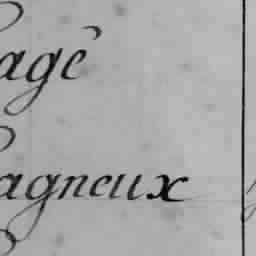 agé
agneux